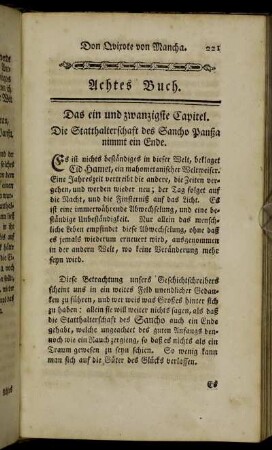 Don Qvixote von Mancha. 221
Achtes Buch.
Das ein und zwanzigste Capitel.
Die Statthalterschaft des Sancho Pansa
nimmt ein Ende.
Es ist nichts beständiges in dieser Welt, beklaget
Cid Hamet, ein mahometanischer Weltweiser.
Eine Jahrszeit vertreibt die andre, die Zeiten ver-
gehen, und werden wieder neu; der Tag folget auf
die Nacht, und die Finsterniß auf das Licht. Es
ist eine immerwährende Abwechselung, und eine be-
ständige Unbeständigkeit. Nur allein das mensch-
liche Leben empfindet diese Abwechselung, ohne daß
es jemals wiederum erneuert wird, ausgenommen
in der andern Welt, wo keine Veränderung mehr
seyn wird.
Diese Betrachtung unsers Geschichtschreibers
scheint uns in ein weites Feld unendlicher Gedan-
ken zu führen, und wer weis was Großes hinter sich
zu haben: allein sie will weiter nichts sagen, als daß
die Statthalterschaft des Sancho auch ein Ende
gehabt, welche ungeachtet des guten Anfangs den-
noch wie ein Rauch zergieng, so daß es nichts als ein
Traum gewesen zu seyn schien. So wenig kann
man sich auf die Güter des Glücks verlassen.
Es